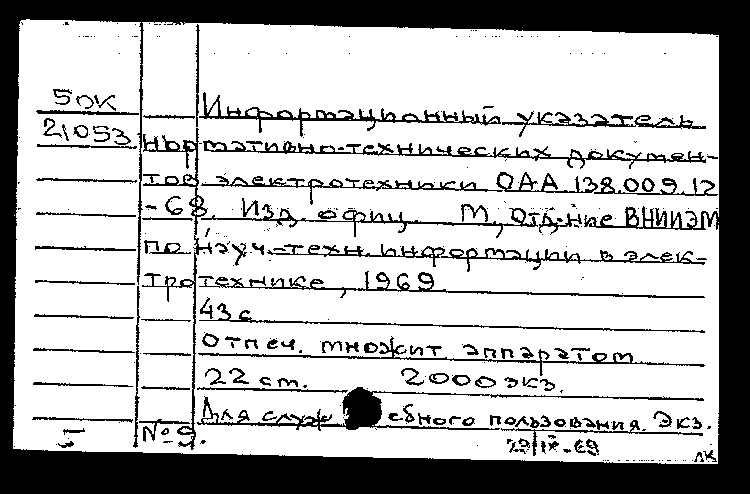 5 ОК
21053
Информационный указатель
нормативно-технических докумен-
тов электротехники ОАА.138.009.12
-68. Изд. офиц. М, Отд-ние ВНИИЭМ
по науч.-техн. информации в элек-
тротехнике, 1969
43 с
Отпеч. множит аппаратом
22 ст. 2000 экз.
Для служебного пользования. Экз.
5 № 9. 29/IX-69 ЛК